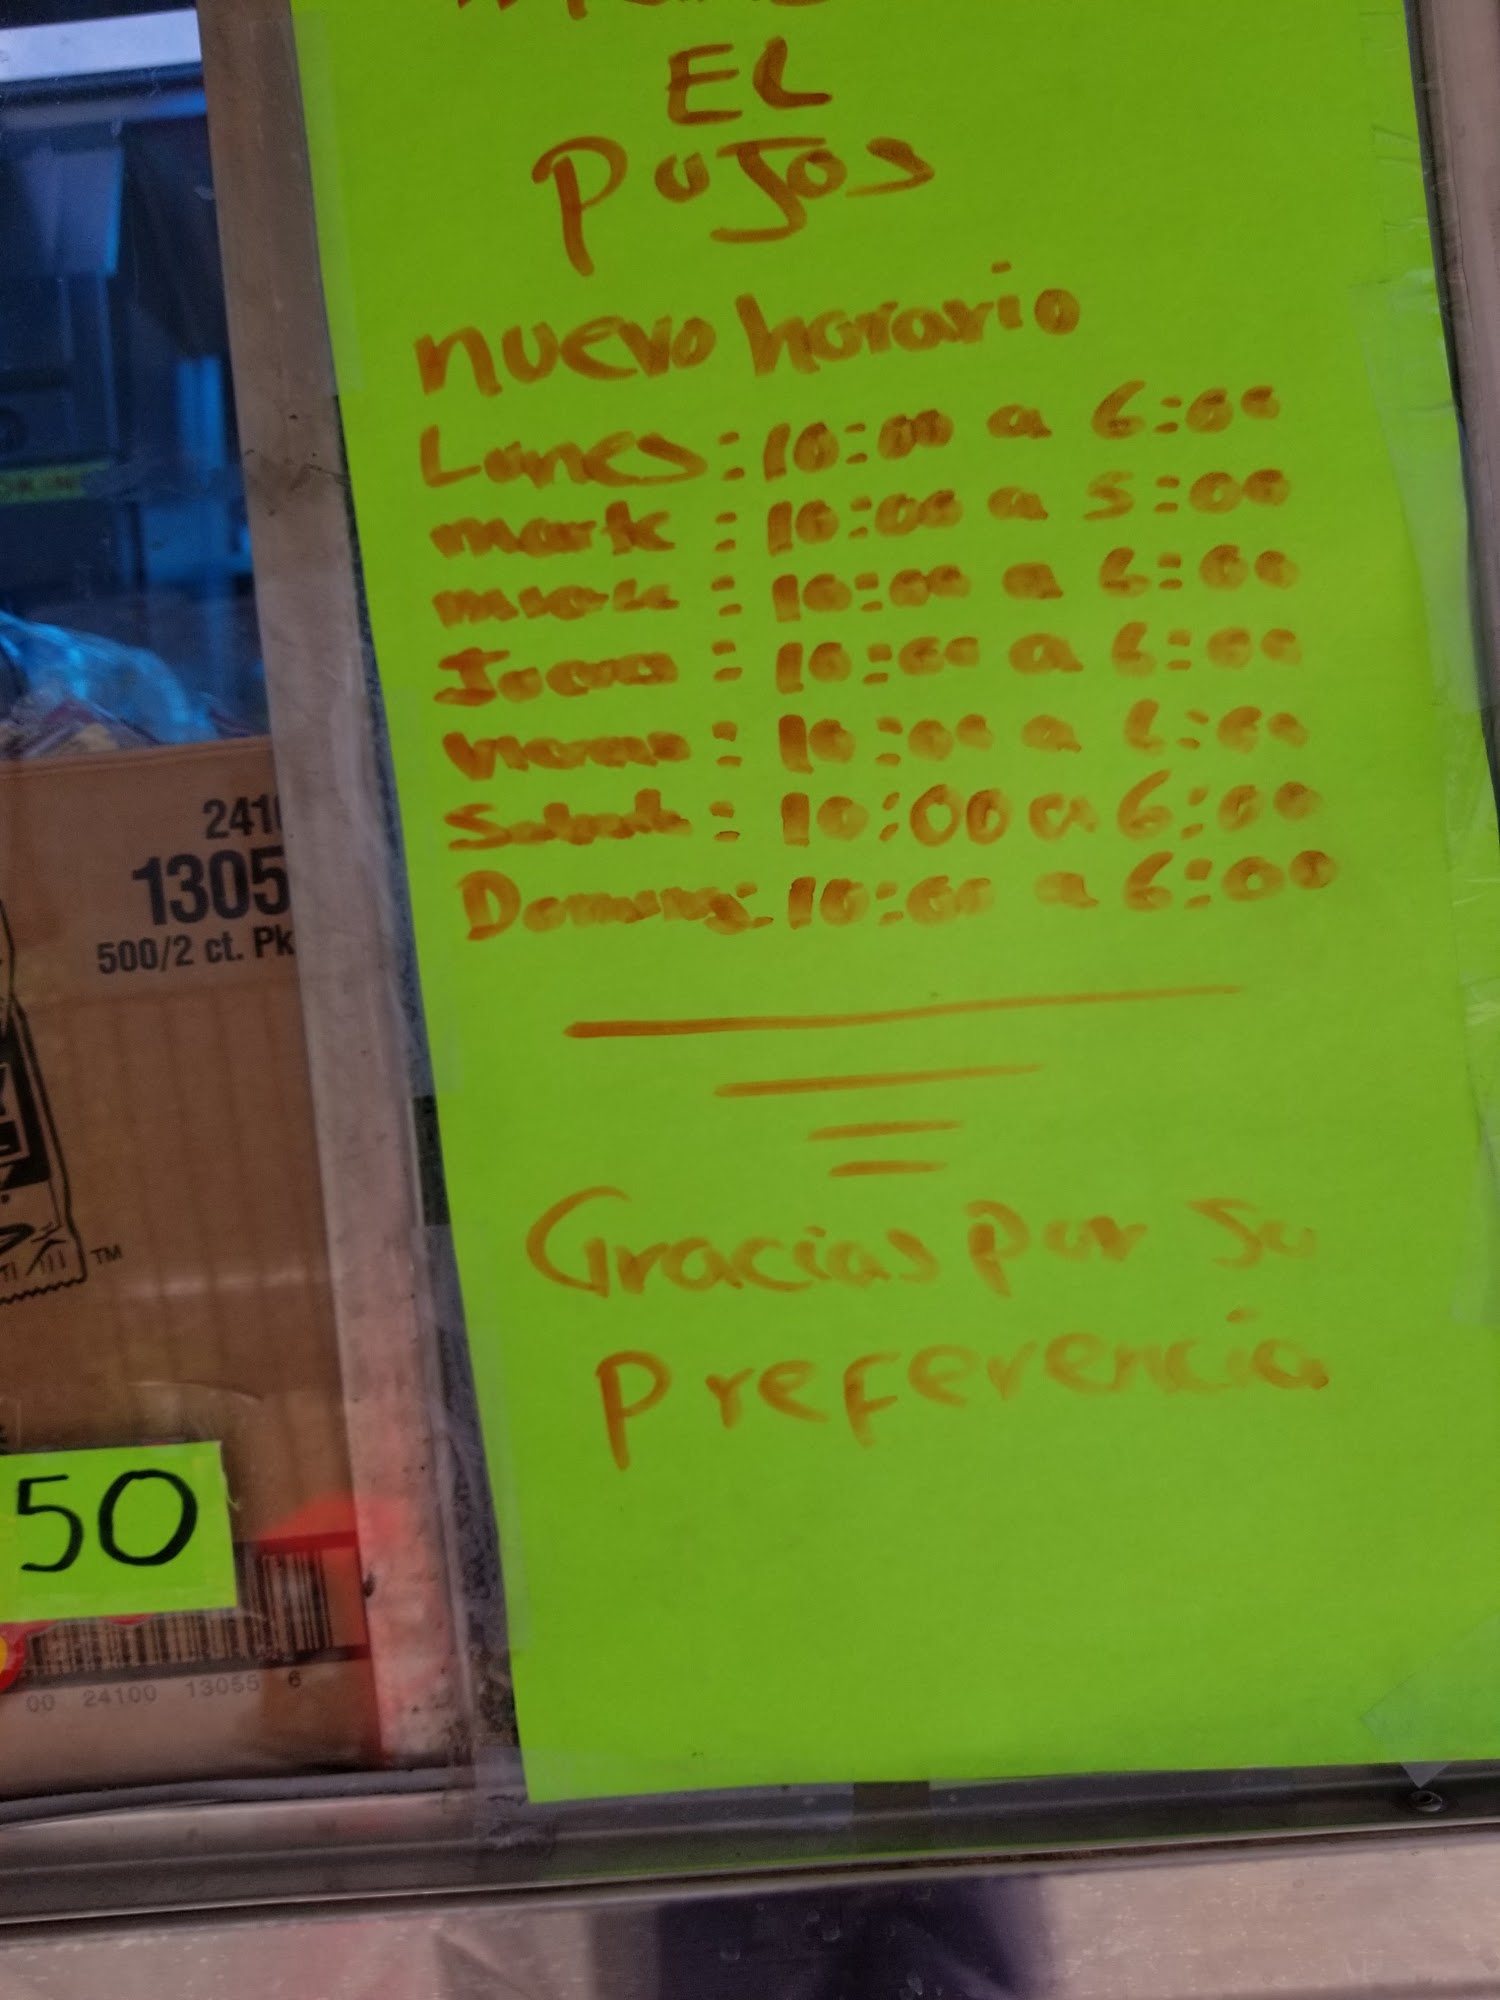 EL
Pujos
nuevo horario
Lunes: 10:00 a 6:00
: 10:00 a 5:00
: 10:00 a 6:00
Jueves : 10:00 a 6:00
Viernes : 10:00 a 6:00
Sabado : 10:00 a 6:00
: 10:00 a 6:00
Gracias por su
Preferencia
1305
500/2 ct. Pk
TM
50
00 24100 13055 6